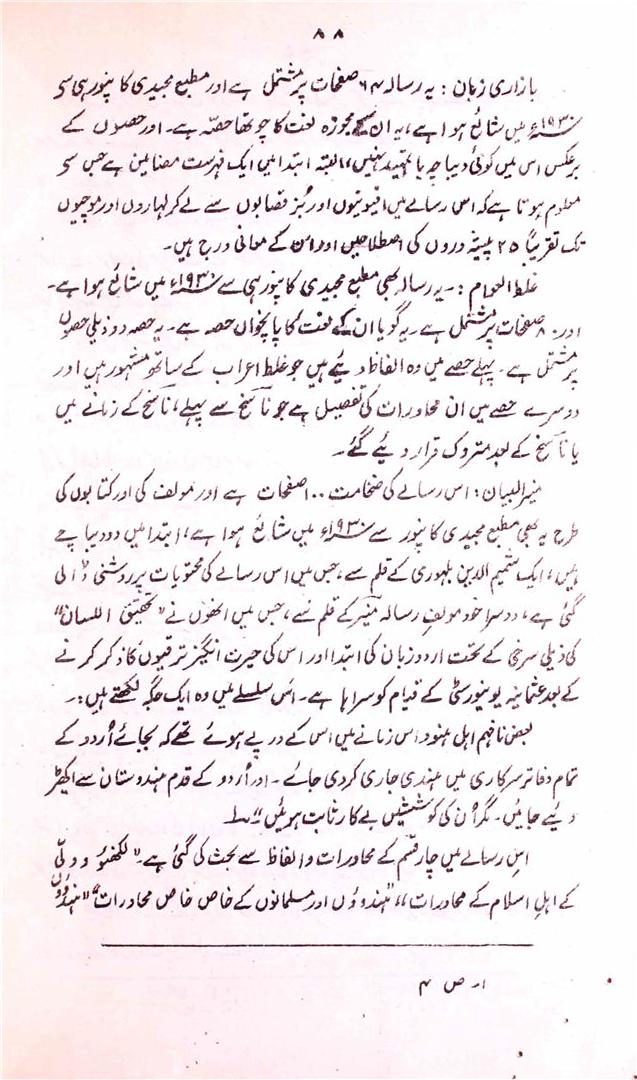 ۸۸
بازاری زبان : یہ رسالہ ۶۴ صفحات پر مشتمل ہے اور مطبع مجیدی کا پنور ہی سے
۱۹۳۰ء میں شائع ہوا ہے، یہ ان کے مجوزہ لغت کا چوتھا حصّہ ہے۔ اور حصلوں کے
برعکس اس میں کوئی دیباچہ یا تمہید نہیں،، البتہ ابتدا میں ایک فہرست مضامین ہے جس سے
معلوم ہوتا ہے کہ اس رسالے میں افیونیوں اور بُز قصابوں سے لے کر لہاروں اور موچیوں
تک تقریباً ۲۵ پیشہ وروں کی اصطلاحیں اور ان کے معانی درج ہیں۔
غلط العوام :۔ یہ رسالہ بھی مطبع مجیدی کا پنور ہی سے ۱۹۳۰ء میں شائع ہوا ہے۔
اور ۸۰ صفحات پر مشتمل ہے۔ یہ گویا ان کے لغت کا پانچواں حصہ ہے۔ یہ حصہ دو ذیلی حصوں
پر مشتمل ہے۔ پہلے حصے میں وہ الفاظ دیئے ہیں جو غلط اعراب کے ساتھ مشہور ہیں اور
دوسرے حصے میں ان محاورات کی تفصیل ہے جو ناسخ سے پہلے، ناسخ کے زمانے میں
یا ناسخ کے بعد متروک قرار دیئے گئے۔
منیر البیان : اس رسالے کی ضخامت ۱۰۰ صفحات ہے اور مولف کی اور کتابوں کی
طرح یہ بھی مطبع مجیدی کا پنور سے ۱۹۳۰ء میں شائع ہوا ہے، ابتدا میں دو دیباچے
ہیں، ایک شمیم الدین بلہوری کے قلم سے، جس میں اس رسالے کی محتویات پر روشنی ڈالی
گئی ہے، دوسرا خود مولفِ رسالہ منیر کے قلم سے، جس میں انھوں نے "تحقیق اللسان"
کی ذیلی سرخی کے تحت اردو زبان کی ابتدا اور اس کی حیرت انگیز ترقیوں کا ذکر کرنے
کے بعد عثمانیہ یونیورسٹی کے قیام کو سراہا ہے۔ اسی سلسلے میں وہ ایک جگہ لکھتے ہیں:۔
بعض نافہم اہل ہنود اس زمانے میں اس کے درپے ہوئے تھے کہ بجائے اُردو کے
تمام دفاتر سرکاری میں ہندی جاری کر دی جائے۔ اور اُردو کے قدم ہندوستان سے اکھیڑ
دیئے جائیں۔ مگر اُن کی کوششیں بے کار ثابت ہوئیں"۱
اس رسالے میں چار قسم کے محاورات و الفاظ سے بحث کی گئی ہے۔ "لکھنؤ و دلّی
کے اہلِ اسلام کے محاورات،، "ہندوؤں اور مسلمانوں کے خاص خاص محاورات" "ہندوؤں
۱۔ ص ۴